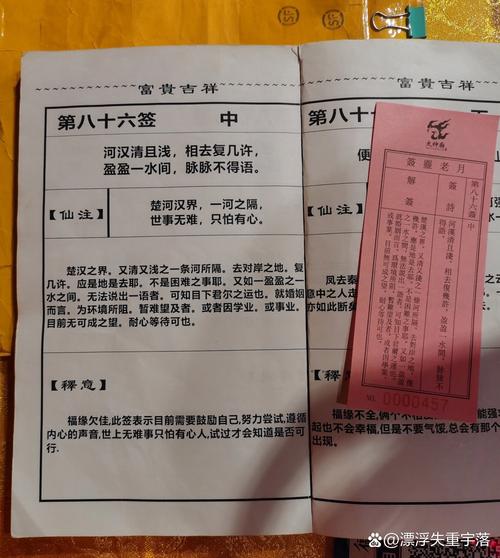 富貴吉祥
第八十六签 中
河汉清且浅，相去复几许，
盈盈一水间，脉脉不得语。
【仙注】
楚河汉界，一河之隔，
世事无难，只怕有心。
楚汉之界。又清又浅之一条河所隔。去对岸之地。复
几许。应是地是去耶。不是困难之事耶。又如一盈盈一
水之间。无法说出一语者。可知目下君尔之运也。就婚姻
而言。为环境所阻。暂难望及者。或者因学业。或事业。
目前无可成之望。耐心等待可也。
【釋意】
福缘欠佳,此签表示目前需要鼓励自己,努力尝试,遵循
内心的声音,世上无难事只怕有心人,试过才会知道是否可
行.
富貴吉祥
第八十
便
凤去秦
意中之人
亦如此断
福缘不全,俩个不相
能强
起也不会幸福,但是不要气馁,总会有那个
出现。
火神廟
月老靈簽
第八十六簽 中
簽詩
河漢清且淺，相去復幾許，盈盈一水間，脉脉不
得語。
解簽
楚漢之界，又清又淺之一條河所隔，去對岸之地，復
幾許，應是地是去耶，不是困難之事耶，又如一盈盈
之一水之間，無法說出一語者，可知目下君爾之運也，
就婚姻而言，爲環境所阻，暫難望及者，或者因學業，
或事業，目前無可成之望，耐心等待可也。
NO. 0000457
@漂浮失重宇落